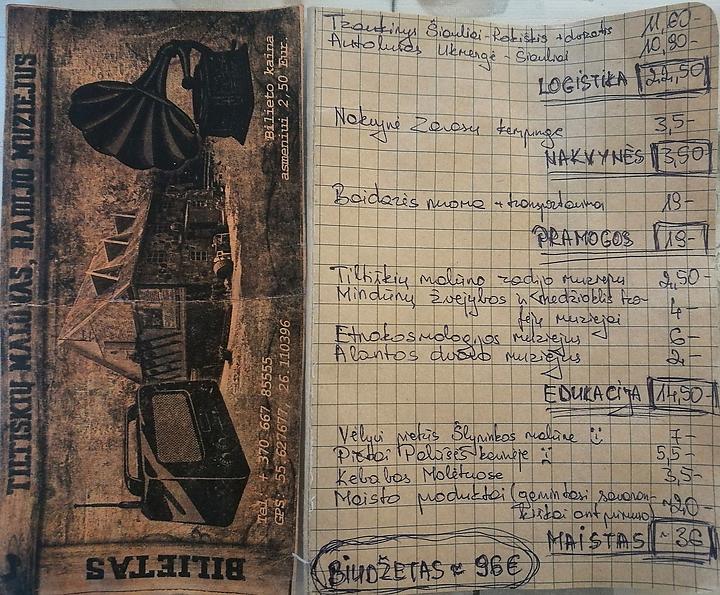 TILTIŠKIŲ MALŪNAS, RADIJO MUZIEJUS
Bilieto kaina
asmeniui 2,50 Eur.
Tel. + 370 667 85555
GPS: 55 627677, 26 110396
BILIETAS
Traukinys Šiauliai-Rokiškis + dviratis 11,60-
Autobusas Ukmergė - Šiauliai 10,90-
LOGISTIKA 22,50
Nakvynė Zarasų kempinge 3,5-
NAKVYNĖS 3,50
Baidarės nuoma + transportavimas 19-
PRAMOGOS 19-
Tiltiškių malūno radijo muziejus 2,50-
Mindūnų žvejybos ir medžioklės tro-
fėjų muziejai 4-
Etnokosmologijos muziejus 6-
Alantos dvaro muziejus 2-
EDUKACIJA 14,50-
Vėlyvi pietūs Šlyninkos malūne :) 7-
Pietai Palūšės kavinėje :) 5,5-
Kebabas Molėtuose 3,5-
Maisto produktai (gaminausi savaran- ~20-
kiškai ant primuso)
MAISTAS ~36
BIUDŽETAS ≈ 96€